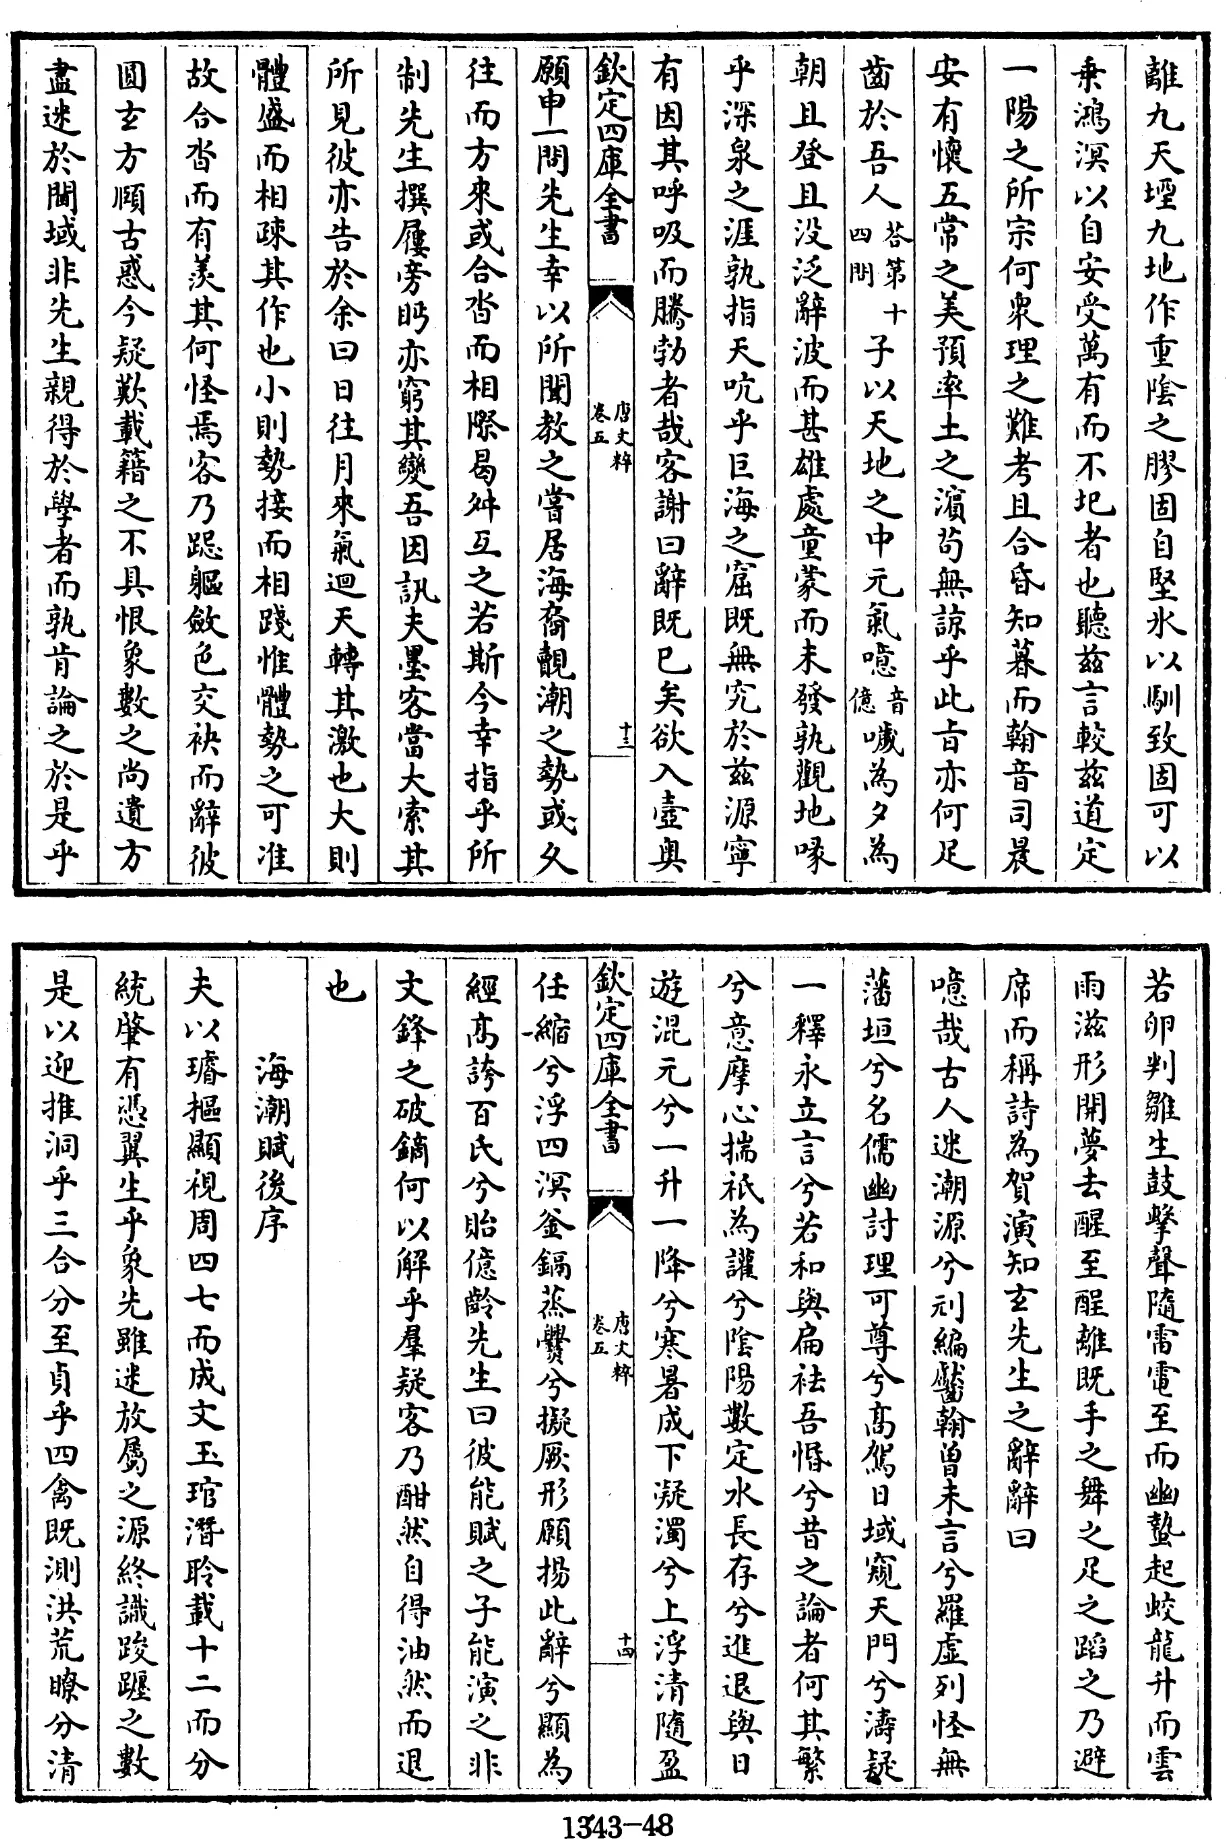 離九天堙九地作重陰之膠固自堅氷以馴致固可以
乗鴻溟以自安受萬有而不圯者也聽茲言較茲道定
一陽之所宗何衆理之難考且合昏知暮而翰音司晨
安有懷五常之美預率土之濱茍無諒乎此旨亦何足
齒於吾人答第十四問子以天地之中元氣噫音億噦為夕為
朝且登且没泛辭波而甚雄處童蒙而未發孰觀地喙
乎深泉之涯孰指天吭乎巨海之窟既無究於茲源寧
有因其呼吸而騰勃者哉客謝曰辭既已矣欲入壼奥
欽定四庫全書
唐文粹
卷五
十三
願申一問先生幸以所聞教之嘗居海裔覩潮之勢或久
往而方來或合沓而相際曷舛互之若斯今幸指乎所
制先生撰屨旁眄亦窮其變吾因訊夫墨客當大索其
所見彼亦告於余曰日往月來氣迴天轉其激也大則
體盛而相疎其作也小則勢接而相踐惟體勢之可准
故合沓而有羨其何怪焉客乃跽軀斂色交袂而辭彼
圓玄方頤古惑今疑歎載籍之不具恨象數之尚遺方
盡迷於閫域非先生親得於學者而孰肯論之於是乎
若卵判雛生鼓擊聲隨雷電至而幽蟄起蛟龍升而雲
雨滋形開夢去醒至酲離既手之舞之足之蹈之乃避
席而稱詩為賀演知玄先生之辭辭曰
噫哉古人迷潮源兮刓編齾翰曾未言兮羅虛列怪無
藩垣兮名儒幽討理可尊兮高駕日域窺天門兮濤疑
一釋永立言兮若和與扁袪吾惛兮昔之論者何其繁
兮意摩心揣祇為讙兮陰陽數定水長存兮進退與日
遊混元兮一升一降兮寒暑成下凝濁兮上浮清隨盈
欽定四庫全書
唐文粹
卷五
十四
任縮兮浮四溟釜鬲蒸爨兮擬厥形願揚此辭兮顯為
經高誇百氏兮貽億齡先生曰彼能賦之子能演之非
文鋒之破鏑何以解乎羣疑客乃酣然自得油然而退
也
海潮賦後序
夫以璿樞顯視周四七而成文玉琯潛聆載十二而分
統肇有憑翼生乎象先雖迷放屬之源終識踆躔之數
是以迎推洞乎三合分至貞乎四禽既測洪荒瞭分清
1343-48